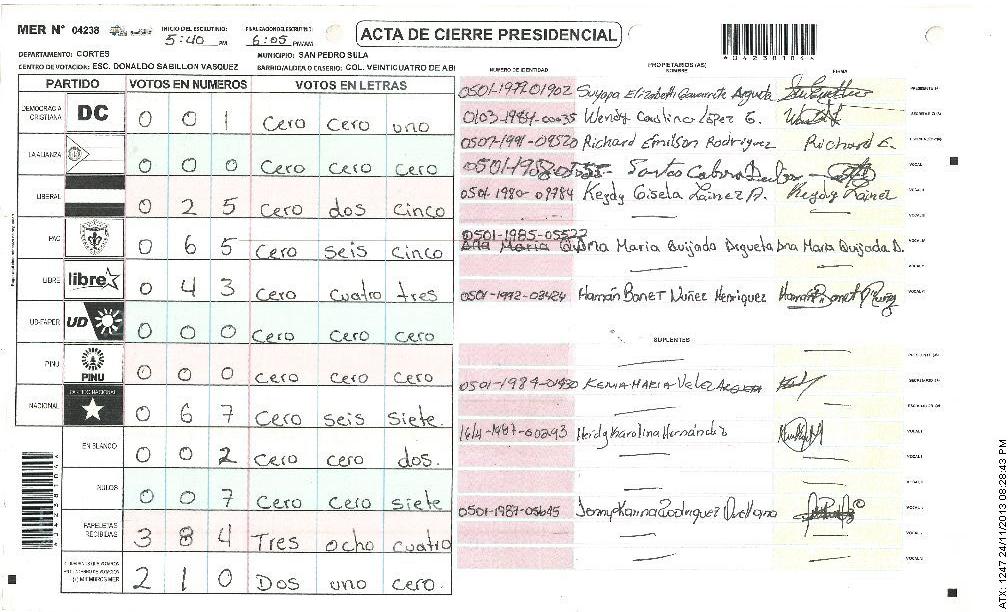 MER N° 04238
INICIO DEL ESCRUTINIO: 5:40 PM
FINALIZACION DEL ESCRUTINIO: 6:05 PM/AM
ACTA DE CIERRE PRESIDENCIAL
DEPARTAMENTO: CORTES
MUNICIPIO: SAN PEDRO SULA
CENTRO DE VOTACION: ESC. DONALDO SABILLON VASQUEZ
BARRIO/ALDEA O CASERIO: COL. VEINTICUATRO DE ABI
PARTIDO VOTOS EN NUMEROS VOTOS EN LETRAS
DEMOCRACIA CRISTIANA DC 0 0 1 Cero Cero uno
LA ALIANZA 0 0 0 Cero Cero Cero
LIBERAL 0 2 5 Cero dos Cinco
PAC 0 6 5 Cero seis Cinco
LIBRE libre 0 4 3 Cero cuatro tres
UD-FAPER UD 0 0 0 Cero Cero Cero
PINU PINU 0 0 0 Cero Cero Cero
NACIONAL PARTIDO NACIONAL 0 6 7 Cero seis Siete
EN BLANCO 0 0 2 Cero cero dos.
NULOS 0 0 7 Cero Cero siete
PAPELETAS RECIBIDAS 3 8 4 Tres ocho cuatro
2 1 0 Dos uno cero.
NUMERO DE IDENTIDAD PROPIETARIOS(AS) NOMBRE FIRMA
Suyapa Elizabeth Argueta
0103-1984-00035 Wendy Carolina López G.
0507-1991-09520 Richard Emilson Rodriguez Richard E.
0501-1980-09784 Keydy Gisela Lainez A. Keydy Lainez
0501-1985-05522
Ana Maria Quijada Argueta Ana Maria Quijada A.
0501-1992-03424 Hamán Bonet Nuñez Henriquez
SUPLENTES
KENIA MARIA VELEZ
Heidy Karolina Hernández
0501-1987-05645 Jenny Karina Rodriguez Orellana
ATX: 1247 24/11/2013 08:28:43 PM